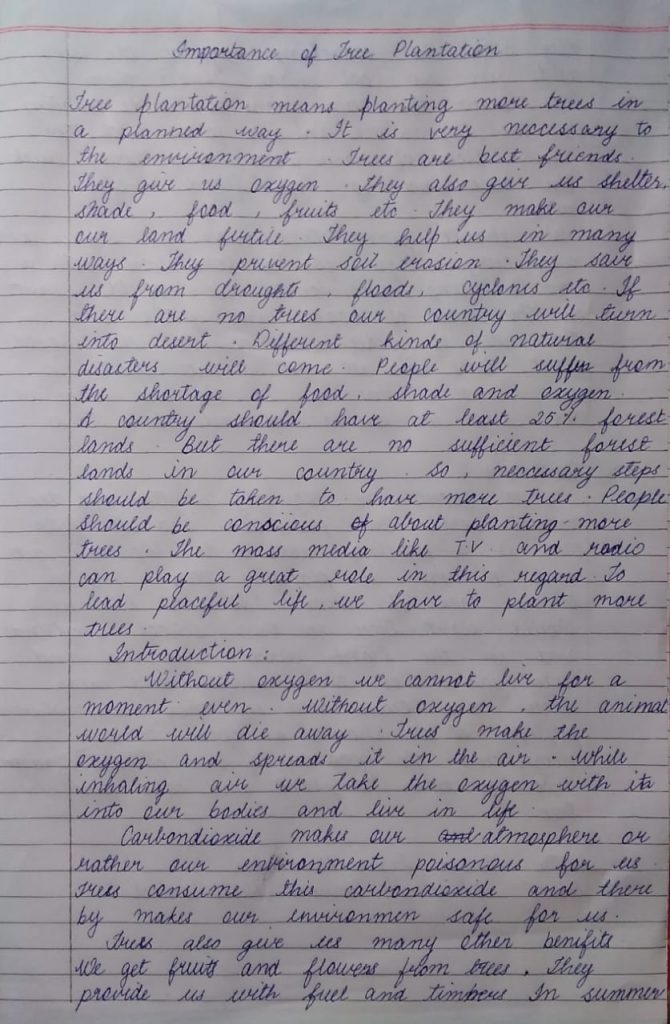 Importance of Tree Plantation
Tree plantation means planting more trees in
a planned way. It is very neccessary to
the environment. Trees are best friends.
They give us oxygen. They also give us shelter,
shade, food, fruits etc. They make our
our land fertile. They help us in many
ways. They prevent soil erosion. They save
us from droughts, floods, cyclones etc. If
there are no trees our country will turn
into desert. Different kinds of natural
disasters will come. People will suffer from
the shortage of food, shade and oxygen.
A country should have at least 25% forest
lands. But there are no sufficient forest
lands in our country. So, neccessary steps
should be taken to have more trees. People
should be conscious of about planting more
trees. The mass media like T.V. and radio
can play a great role in this regard. To
lead peaceful life, we have to plant more
trees.
Introduction:
Without oxygen we cannot live for a
moment even. Without oxygen, the animal
world will die away. Trees make the
oxygen and spreads it in the air. While
inhaling air we take the oxygen with it
into our bodies and live in life.
Carbondioxide makes our atmosphere or
rather our environment poisonous for us.
Trees consume this carbondioxide and there
by makes our environmen safe for us.
Trees also give us many other benifits
We get fruits and flowers from trees. They
provide us with fuel and timbers In summer